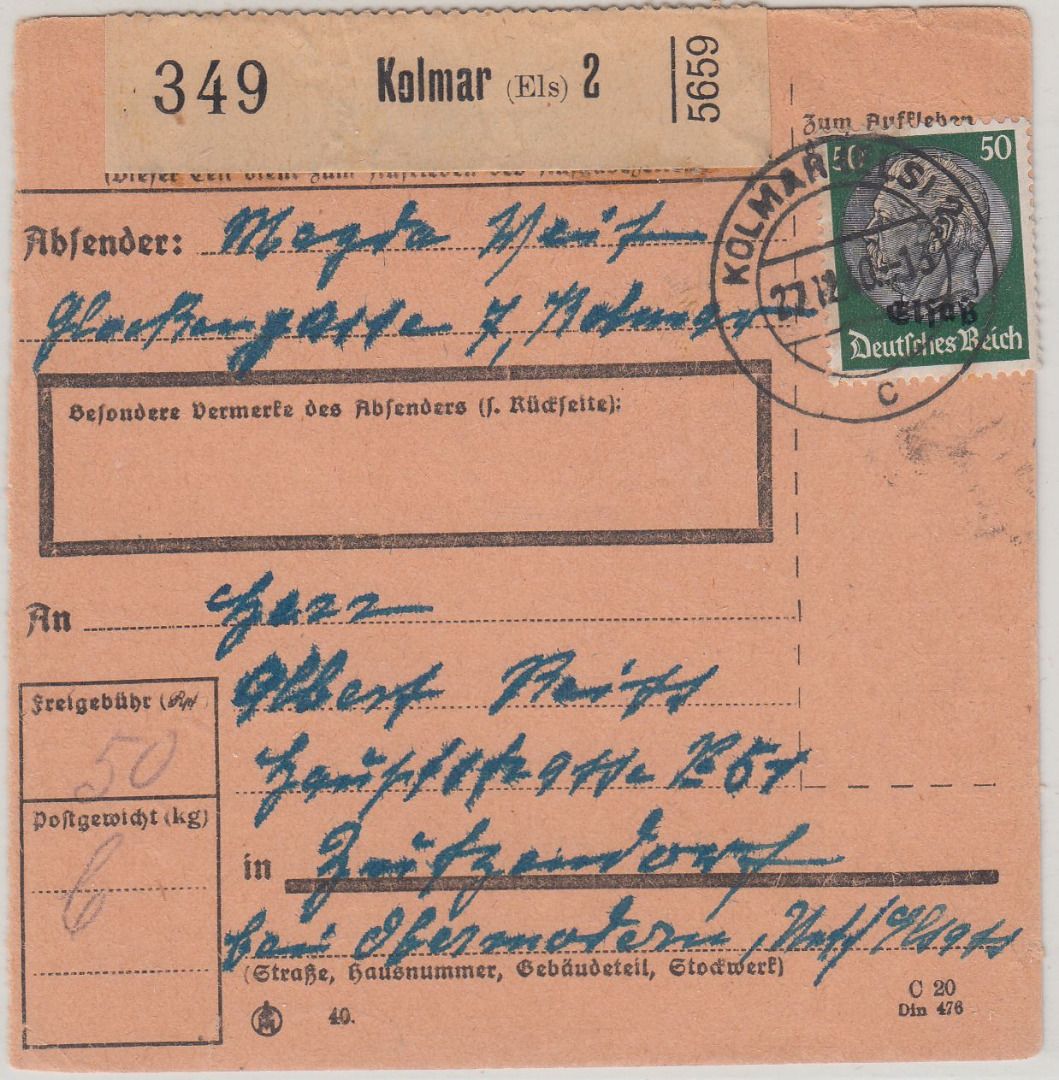 349 Kolmar (Els) 2 5659
Zum Aufkleben
(Dieser Teil dient zum Aufkleben des
50 50
Elsaß
Deutsches Reich
KOLMAR (ELS) 2
27.12.40.-13
C
Absender: Magda
Glockengasse 7, Kolmar
Besondere Vermerke des Absenders (s. Rückseite):
An Herr
Albert Reiss
Hauptstrasse
Freigebühr (Rpf)
50
Postgewicht (kg)
6
in Zutzendorf
bei Obermodern,
(Straße, Hausnummer, Gebäudeteil, Stockwerk)
40.
C 20
Din 476